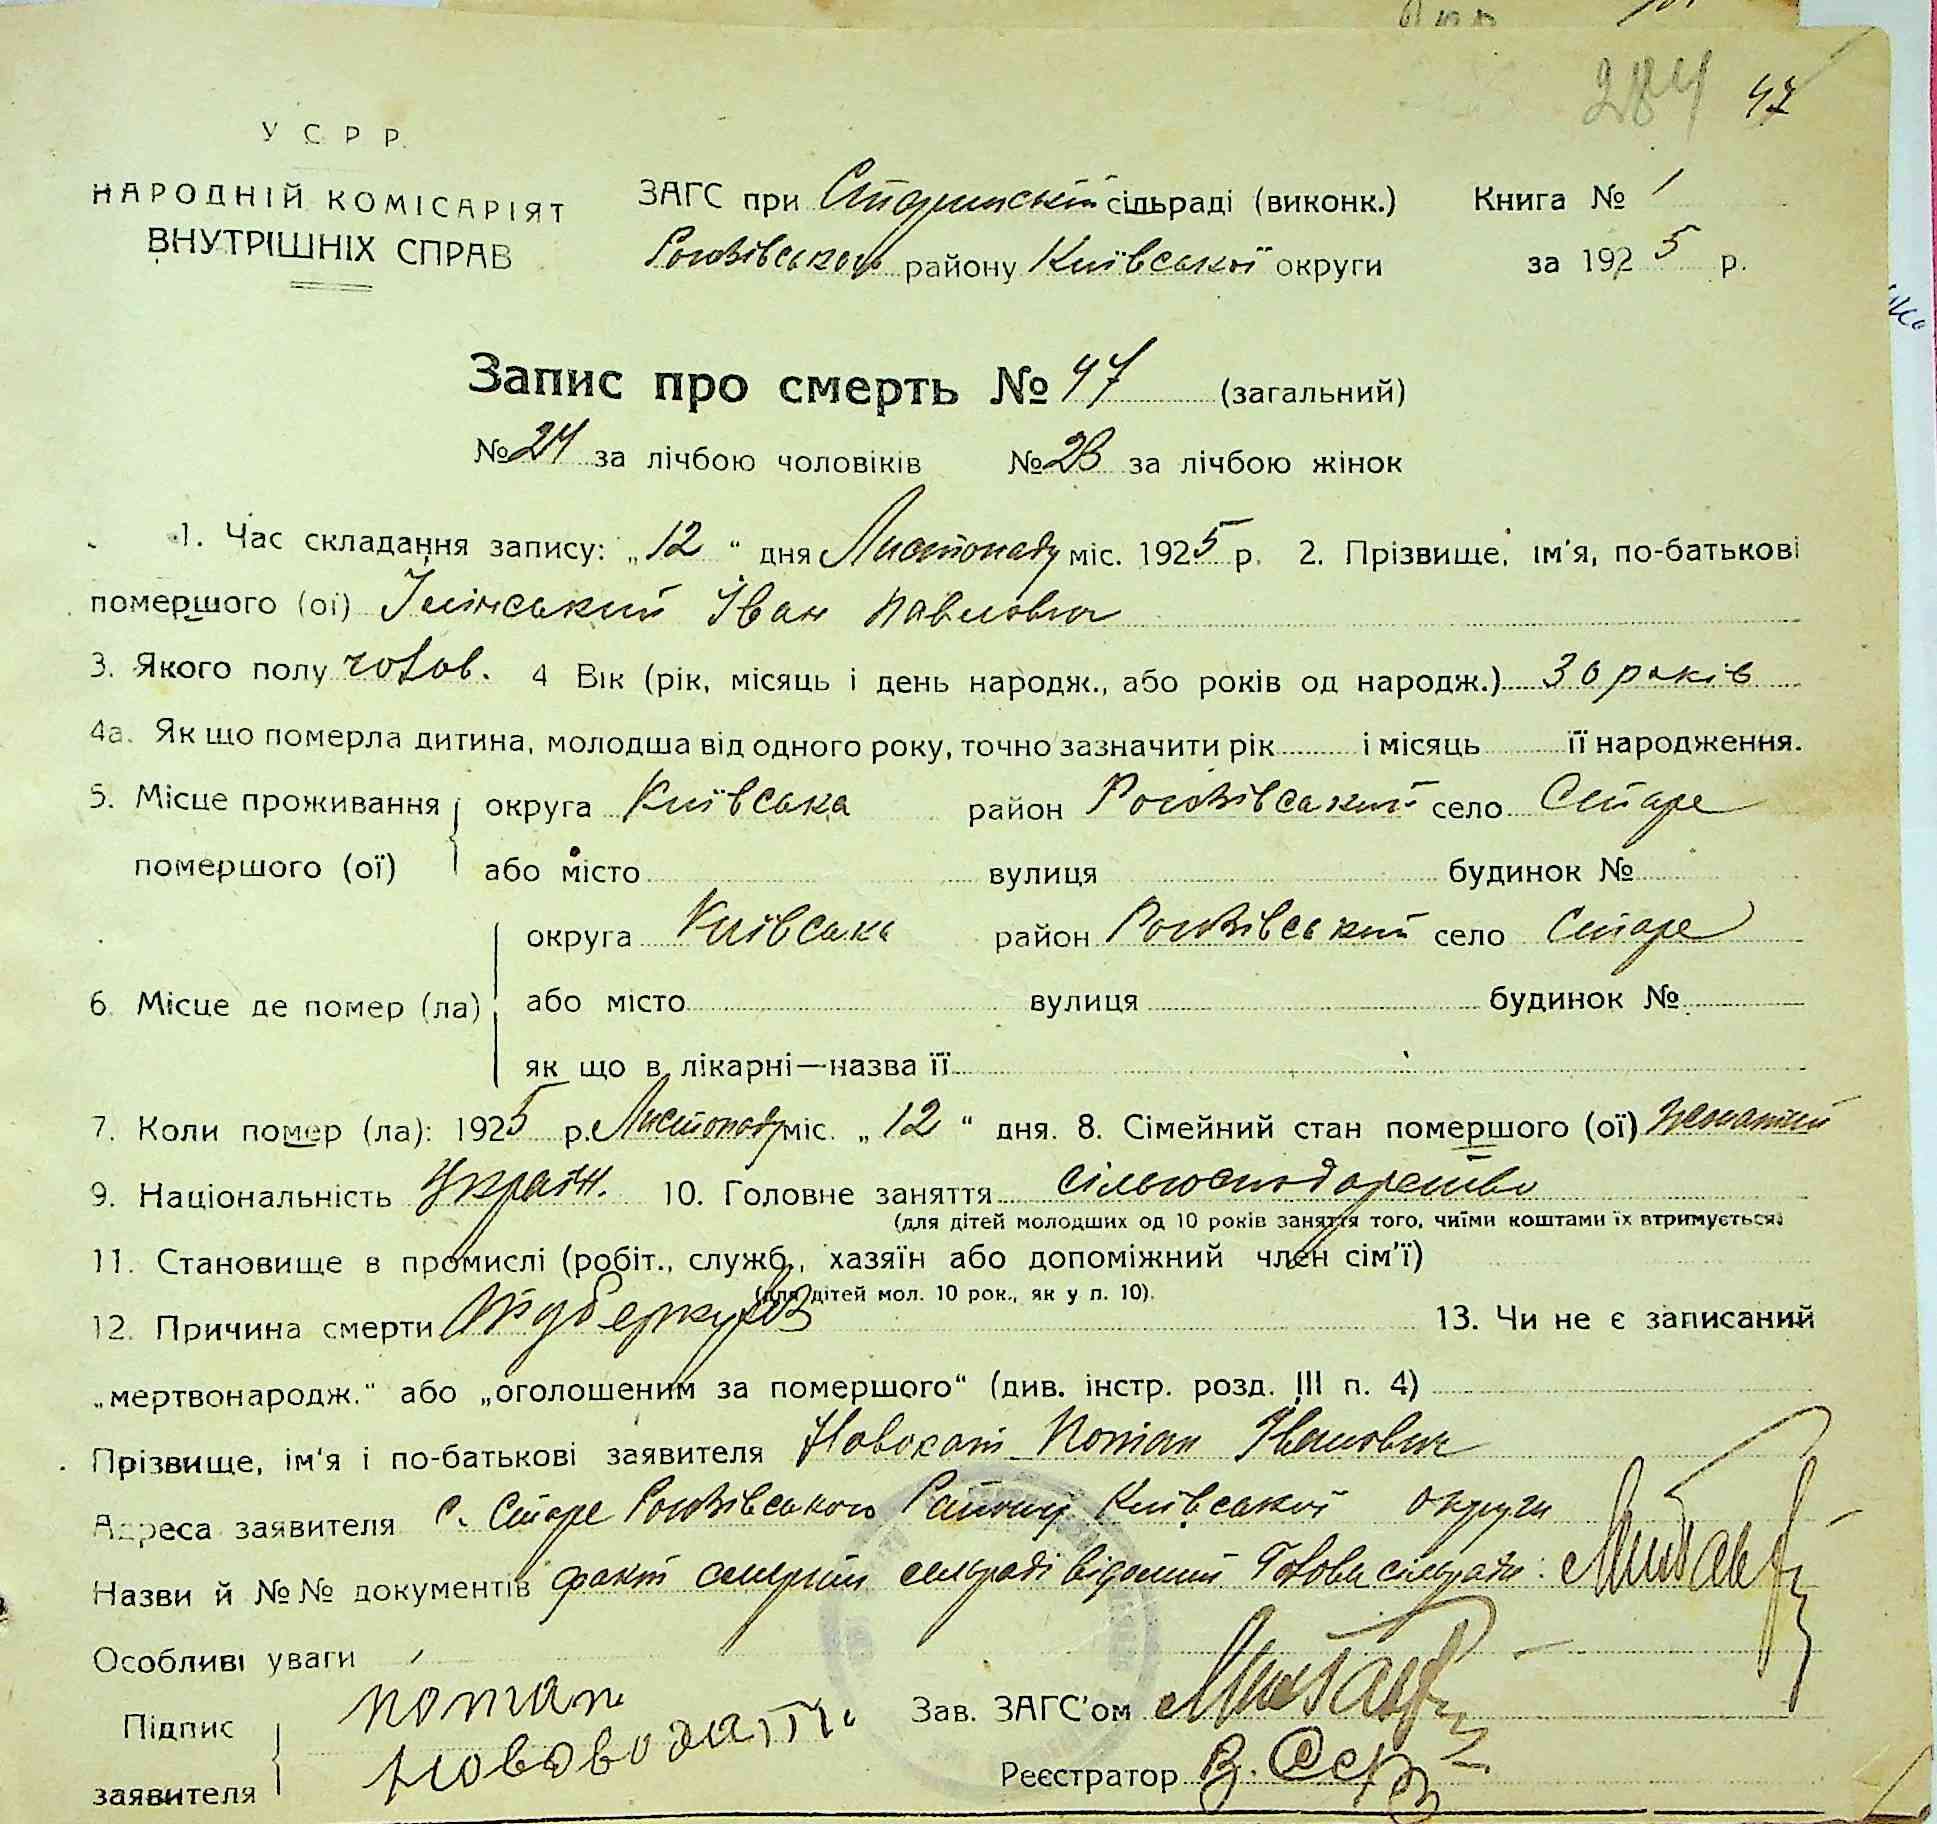 284 47
У С Р Р.
НАРОДНІЙ КОМІСАРІЯТ
ВНУТРІШНІХ СПРАВ
ЗАГС при Старинській сільраді (виконк.) Книга № 1
району Київської округи за 1925 р.
Запис про смерть № 47 (загальний)
№ 24 за лічбою чоловіків № 23 за лічбою жінок
1. Час складання запису: „12" дня Листопаду міс. 1925 р. 2. Прізвище, ім'я, по-батькові
помершого (ої) Іван Павлович
3. Якого полу чолов. 4 Вік (рік, місяць і день народж., або років од народж.) 30 років
4а. Як що померла дитина, молодша від одного року, точно зазначити рік і місяць її народження.
5. Місце проживання округа Київська район село Старе
помершого (ої) або місто вулиця будинок №
округа Київська район село Старе
6. Місце де помер (ла) або місто вулиця будинок №
як що в лікарні—назва її
7. Коли помер (ла): 1925 р. Листопаду міс. „12" дня. 8. Сімейний стан помершого (ої) жонатий
9. Національність Україн. 10. Головне заняття
(для дітей молодших од 10 років заняття того, чиїми коштами їх втримується)
11. Становище в промислі (робіт., служб., хазяїн або допоміжний член сім'ї)
(для дітей мол. 10 рок., як у п. 10).
12. Причина смерти 13. Чи не є записаний
„мертвонародж." або „оголошеним за помершого" (див. інстр. розд. III п. 4)
Прізвище, ім'я і по-батькові заявителя Потап Іванович
Адреса заявителя с. Старе Району Київської округи
Назви й №№ документів факт смерти сільраді відомий Голова сільради:
Особливі уваги
Підпис потап
заявителя
Зав. ЗАГС'ом
Реєстратор В.